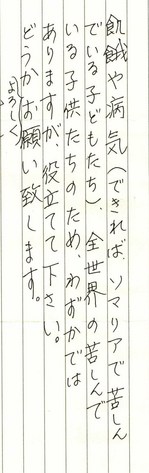 飢餓や病気(できれば、ソマリアで苦しん
でいる子どもたち)、全世界の苦しんで
いる子供たちのため、わずかでは
ありますが、役立てて下さい。
どうかよろしくお願い致します。